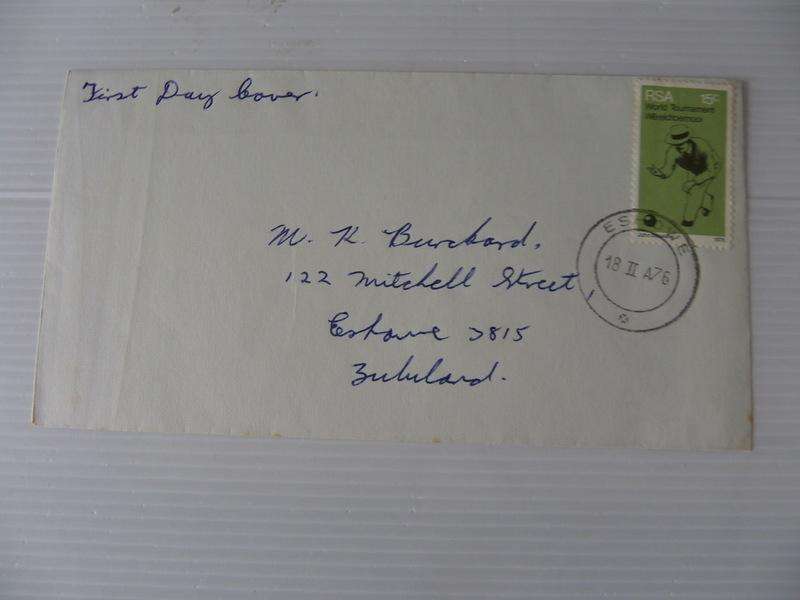 First Day Cover.
RSA 15c
World Tournament
Wêreldtoernooi
M. K. Burchard.
122 Mitchell Street,
Eshowe 3815
Zululand.
ESHOWE
18 II A76